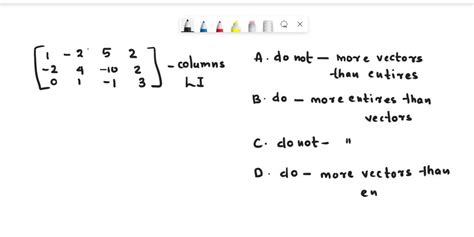 1 -2 5 2
-2 4 -10 2
0 1 -1 3
- columns
LI
A. do not - more vectors
than entires
B. do - more entires than
vectors
C. do not - "
D. do - more vectors than
en